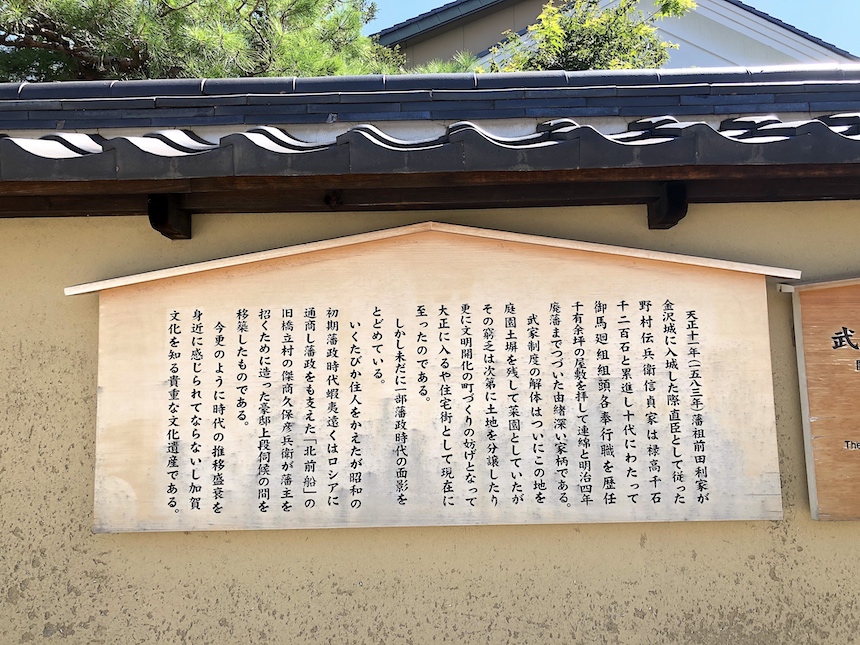 天正十一年（一五八三年）藩祖前田利家が
金沢城に入城した際直臣として従った
野村伝兵衛信貞家は禄高千石
千二百石と累進し十代にわたって
御馬廻組組頭各奉行職を歴任
千有余坪の屋敷を拝して連綿と明治四年
廃藩までつづいた由緒深い家柄である。
武家制度の解体はついにこの地を
庭園土塀を残して菜園としていたが
その窮乏は次第に土地を分譲したり
更に文明開化の町づくりの妨げとなって
大正に入るや住宅街として現在に
至ったのである。
しかし未だに一部藩政時代の面影を
とどめている。
いくたびか住人をかえたが昭和の
初期藩政時代蝦夷遠くはロシアに
通商し藩政をも支えた「北前船」の
旧橋立村の傑商久保彦兵衛が藩主を
招くために造った豪邸上段伺候の間を
移築したものである。
今更のように時代の推移盛衰を
身近に感じられてならないし加賀
文化を知る貴重な文化遺産である。
武
The